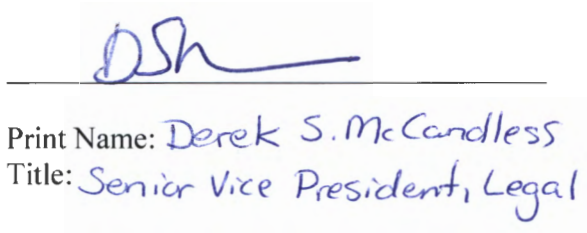 Print Name: Derek S. McCandless
Title: Senior Vice President, Legal